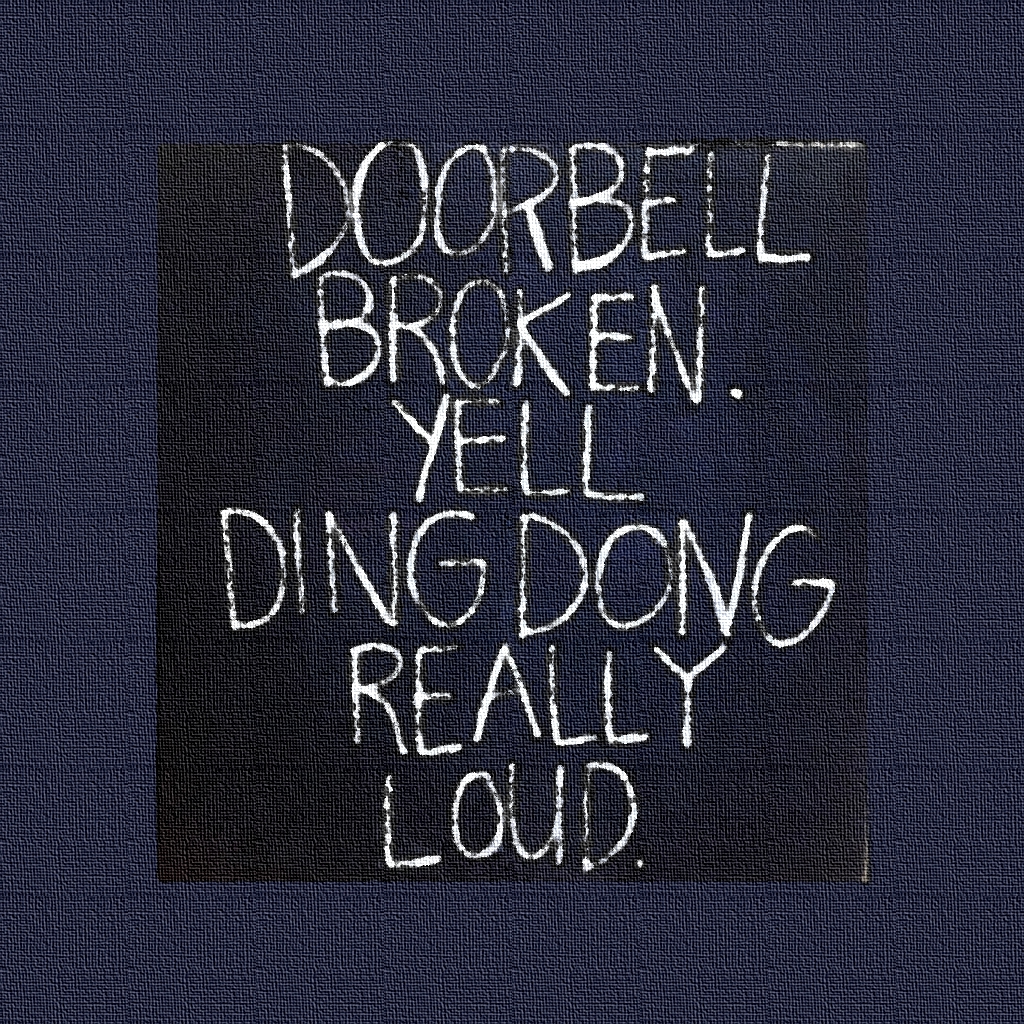 DOORBELL
BROKEN.
YELL
DING DONG
REALLY
LOUD.